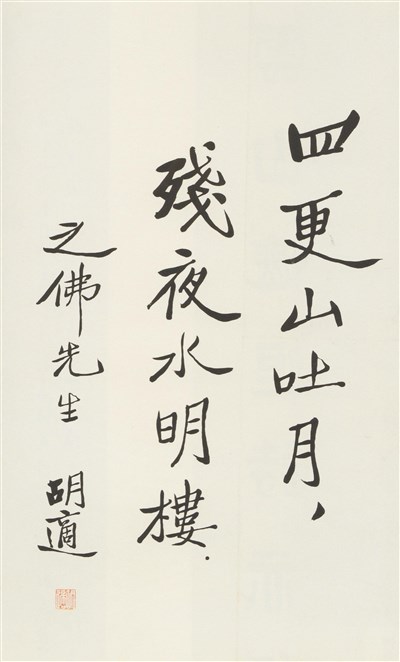 四更山吐月，
殘夜水明樓.
之佛先生 胡適